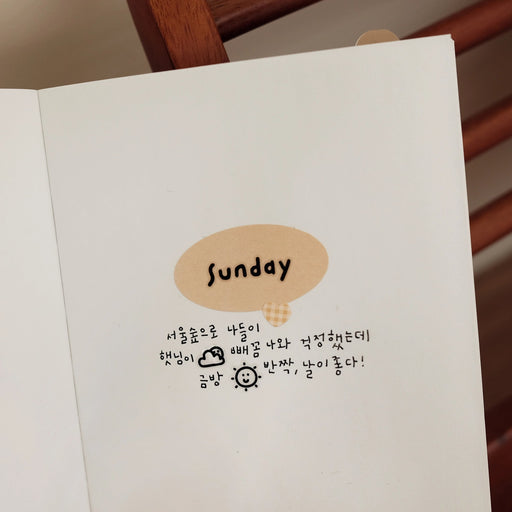 Sunday
서울숲으로 나들이
햇님이 빼꼼 나와 걱정했는데
금방 반짝, 날이 좋다!